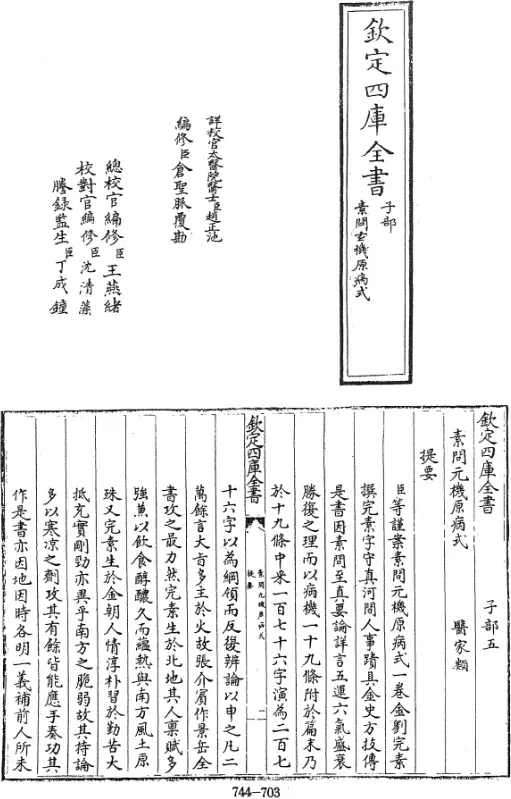 欽定四庫全書
子部
素問玄機原病式
詳校官太醫院醫士臣趙正池
編修臣倉聖脈覆勘
總校官編修臣王燕緒
校對官編修臣沈清藻
謄錄監生臣丁成鐘
欽定四庫全書 子部五
素問元機原病式 醫家類
提要
臣等謹案素問元機原病式一卷金劉完素
撰完素字守真河間人事蹟具金史方技傳
是書因素問至真要論詳言五運六氣盛衰
勝復之理而以病機一十九條附於篇末乃
於十九條中采一百七十六字演為二百七
欽定四庫全書
素問元機原病式
提要
十六字以為綱領而反復辨論以申之凡二
萬餘言大旨多主於火故張介賓作景岳全
書攻之最力然完素生於北地其人稟賦多
強兼以飲食醇醲久而蘊熱與南方風土原
殊又完素生於金朝人情淳朴習於勤苦大
抵充實剛勁亦異乎南方之脆弱故其持論
多以寒凉之劑攻其有餘皆能應手奏功其
作是書亦因地因時各明一義補前人所未
744-703